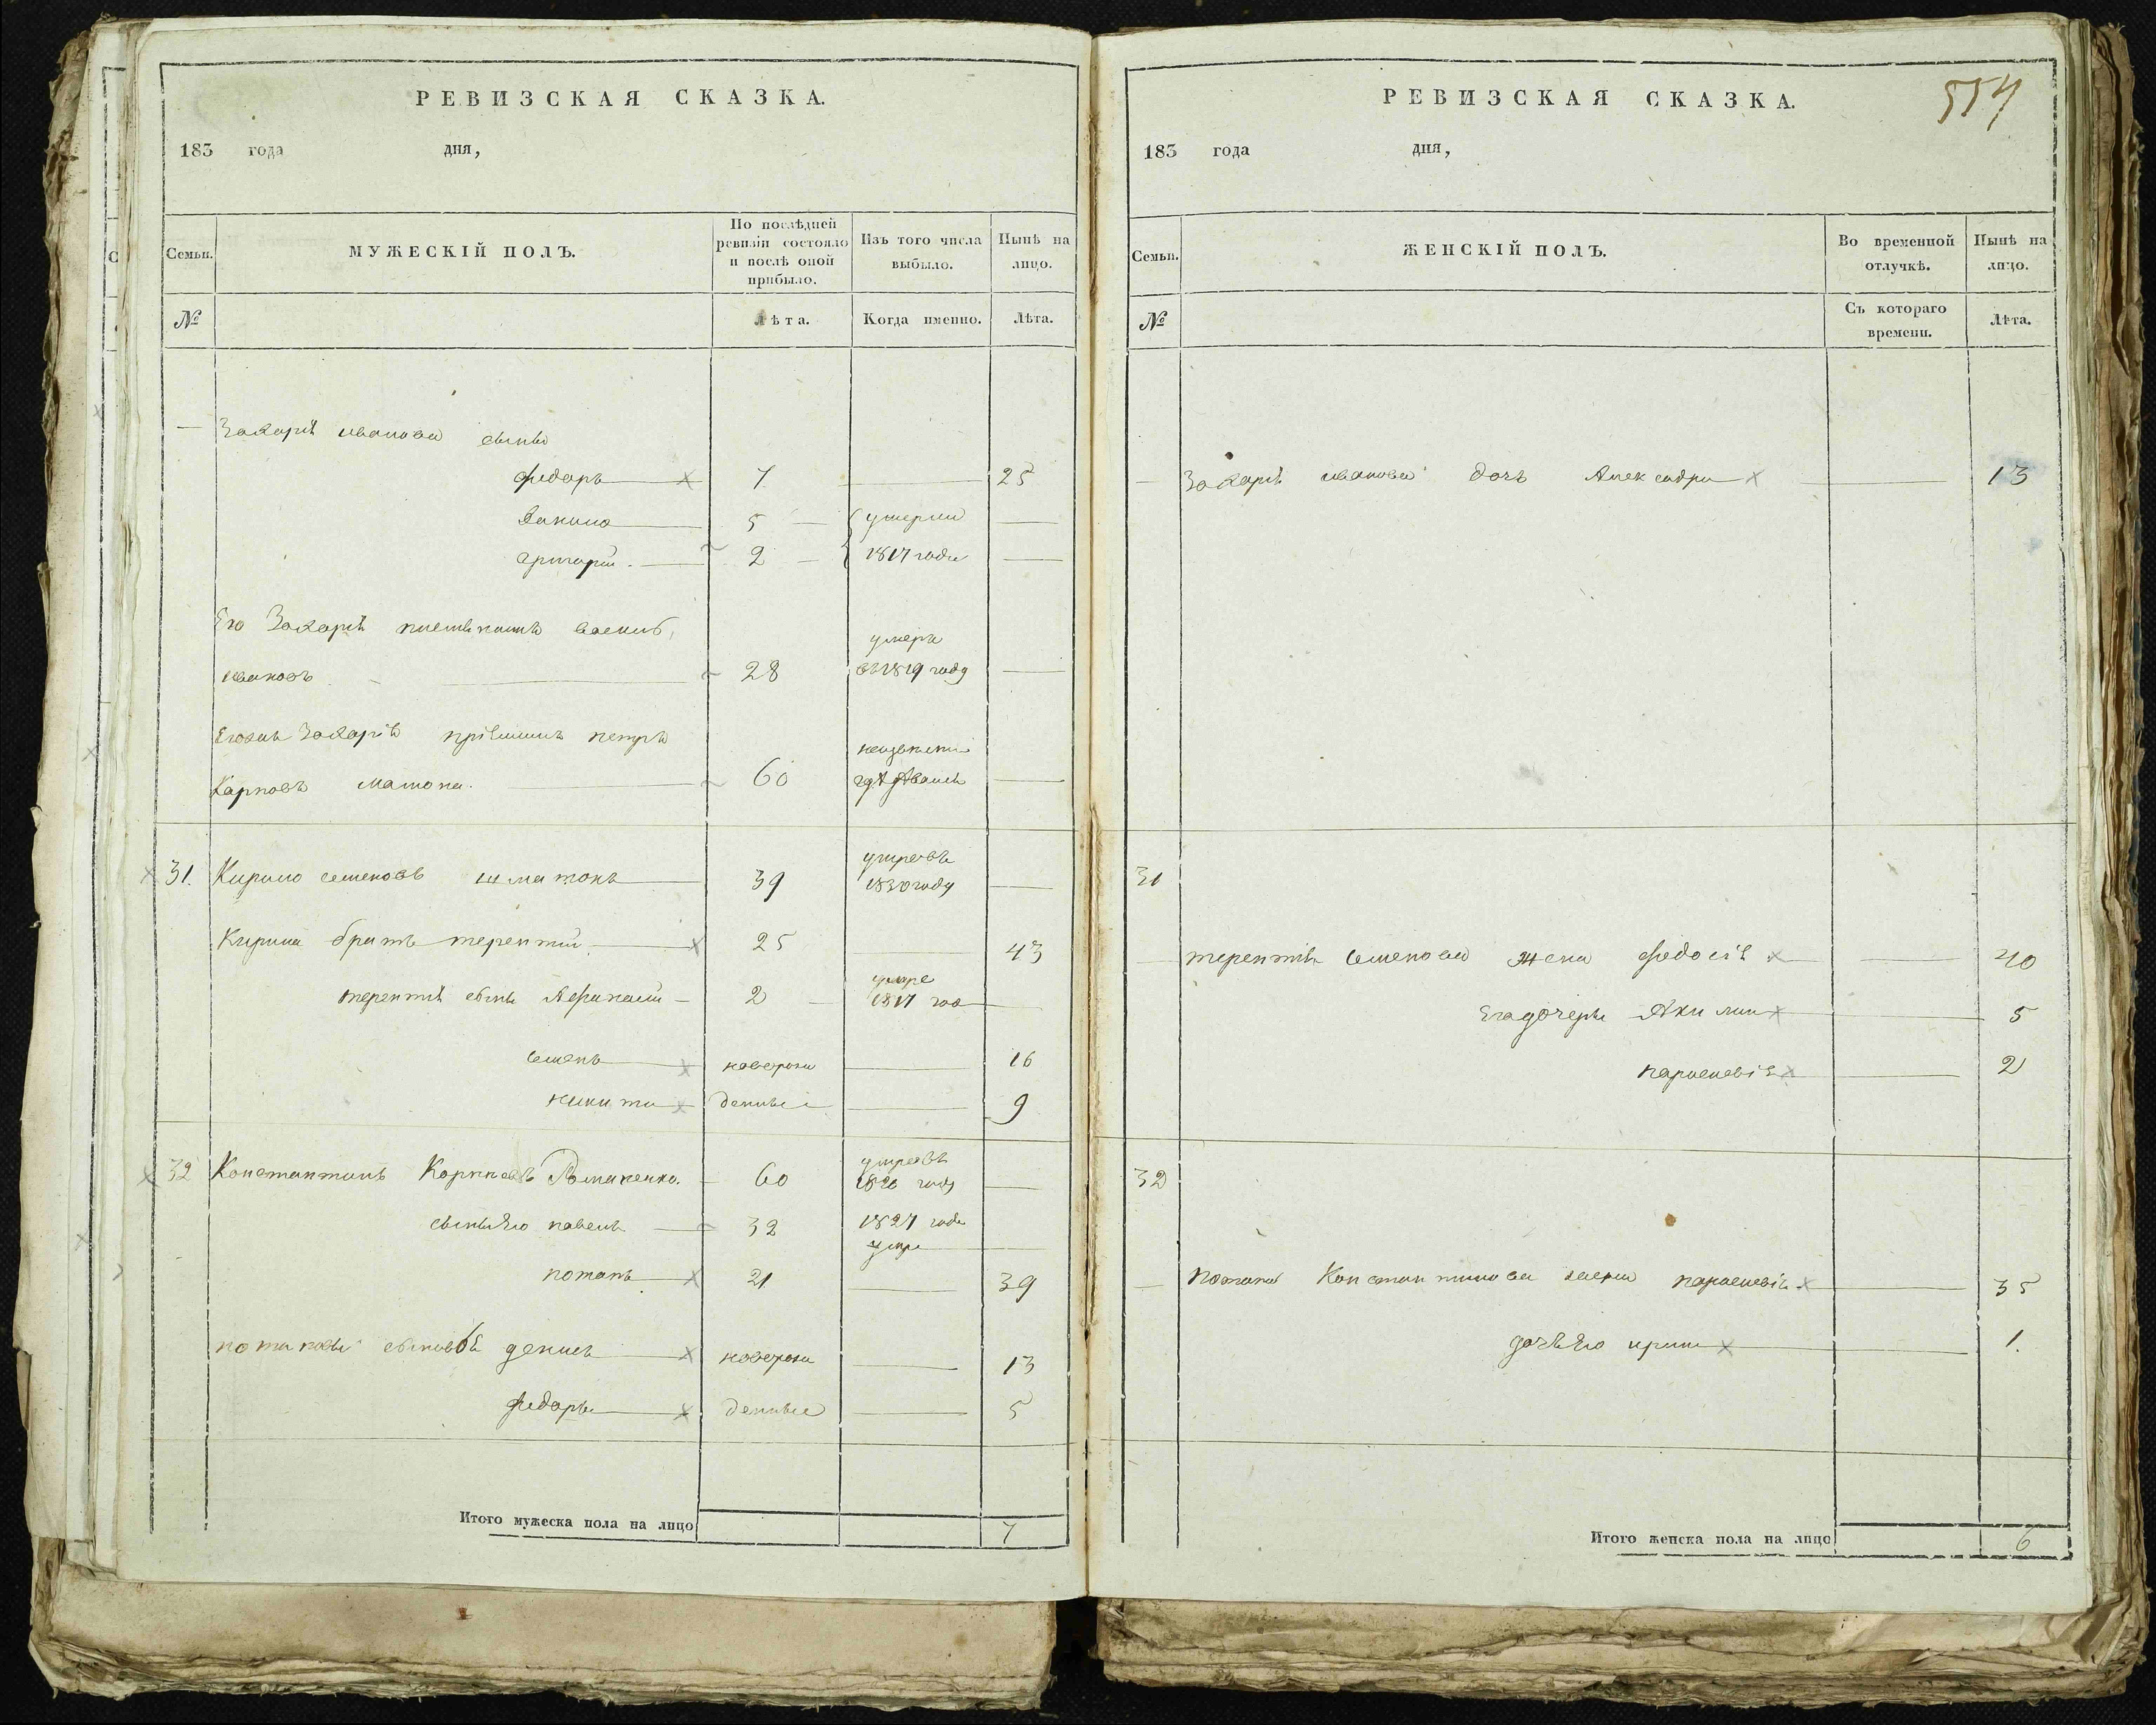 РЕВИЗСКАЯ СКАЗКА.
183 года дня,
Семьи. МУЖЕСКІЙ ПОЛЪ. По послѣдней ревизіи состояло и послѣ оной прибыло. Изъ того числа выбыло. Нынѣ на лицо.
№ Лѣта. Когда именно. Лѣта.
Захарія иванова сыны
федоръ 7 25
5 умерли
григорій 2 1817 года
Его Захарія племянникъ
умеръ
ивановъ 28 въ 1819 году
Захарія петръ
Карповъ 60
31. Кирило семеновъ шматокъ 39 1830 году
Кирила братъ терентій 25 43
терентія сынъ Афанасій 2 1817
семенъ новорож 16
никита денные 9
32 Константинъ Карповъ Романенко. 60 году
сыны его павелъ 32 1827 года
потапъ 21 39
потаповы сыновья денисъ новорож 13
федоръ денные 5
Итого мужеска пола на лицо 7
554
РЕВИЗСКАЯ СКАЗКА.
183 года дня,
Семьи. ЖЕНСКІЙ ПОЛЪ. Во временной отлучкѣ. Нынѣ на лицо.
№ Съ котораго времени. Лѣта.
Захарія иванова дочь Александра 13
31
терентія семенова жена федосія 40
Его дочери Акилина 5
парасковія 2
32
потапа Константинова жена парасковія 35
дочь его ирина 1.
Итого женска пола на лицо 6